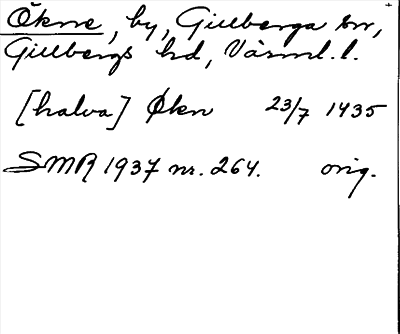 Ökne, by, Gillberga sn,
Gillbergs hd, Värml. l.
[halva] Økn 23/7 1435
SMR 1937 nr. 264. orig.